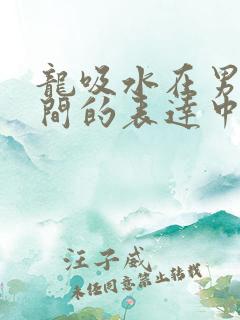 龍吸水在男
間的表達中
汪子威
未任同意禁止转载